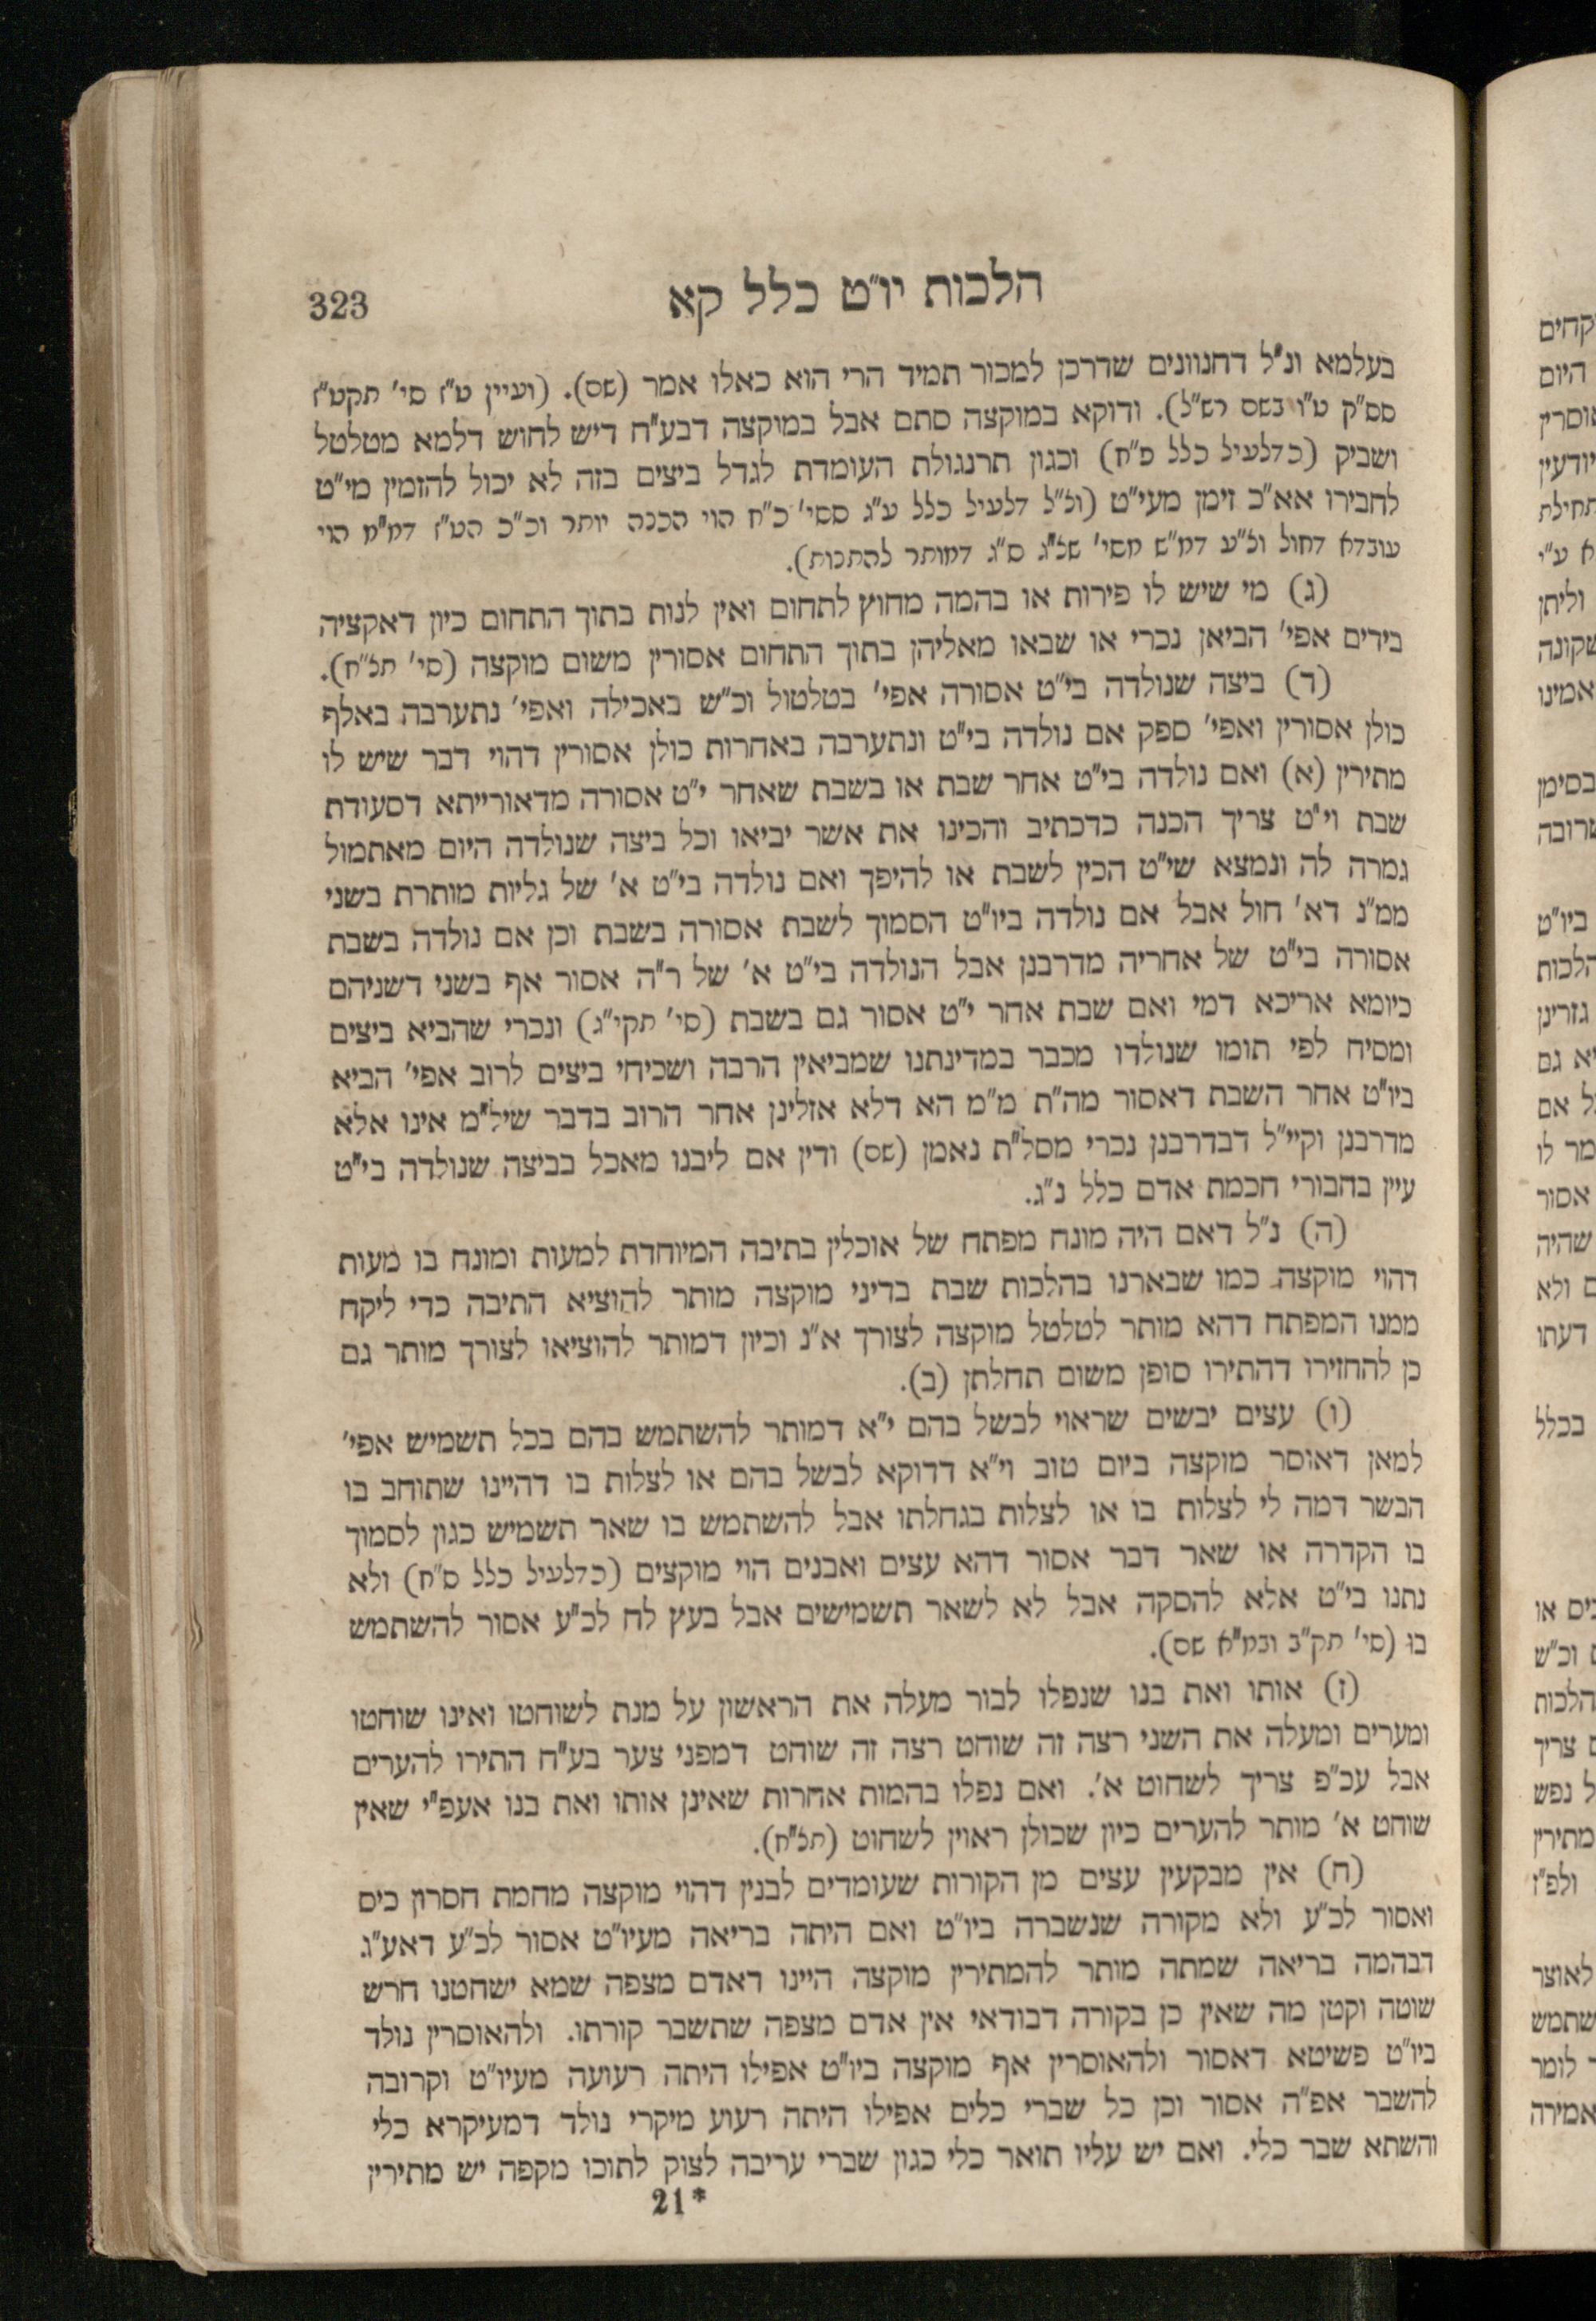 הלכות יו״ט כלל קא
323
בעלמא ונ״ל דחנוונים שדרכן למכור תמיד הרי הוא כאלו אמר (שם). (ועיין ט״ז סי׳ תקט״ז
סס״ק ט״ו בשם רש״ל). ודוקא במוקצה סתם אבל במוקצה דבע״ח דיש לחוש דלמא מטלטל
ושביק (כדלעיל כלל פ״ח) וכגון תרנגולת העומדת לגדל ביצים בזה לא יכול להזמין מי״ט
לחבירו אא״כ זימן מעי״ט (וצ״ל דלעיל כלל ע״ג סס״י כ״ח הוי הכנה יותר וכ״כ הט״ז דמ״מ הוי
עובדא דחול וצ״ע דמ״ש מסי׳ שכ״ג ס״ג דמותר להתכות).
(ג) מי שיש לו פירות או בהמה מחוץ לתחום ואין לנות בתוך התחום כיון דאקציה
בידים אפי׳ הביאן נכרי או שבאו מאליהן בתוך התחום אסורין משום מוקצה (סי׳ תצ״ח).
(ד) ביצה שנולדה בי״ט אסורה אפי׳ בטלטול וכ״ש באכילה ואפי׳ נתערבה באלף
כולן אסורין ואפי׳ ספק אם נולדה בי״ט ונתערבה באחרות כולן אסורין דהוי דבר שיש לו
מתירין (א) ואם נולדה בי״ט אחר שבת או בשבת שאחר י״ט אסורה מדאורייתא דסעודת
שבת וי״ט צריך הכנה כדכתיב והכינו את אשר יביאו וכל ביצה שנולדה היום מאתמול
גמרה לה ונמצא שי״ט הכין לשבת או להיפך ואם נולדה בי״ט א׳ של גליות מותרת בשני
ממ״נ דא׳ חול אבל אם נולדה ביו״ט הסמוך לשבת אסורה בשבת וכן אם נולדה בשבת
אסורה בי״ט של אחריה מדרבנן אבל הנולדה בי״ט א׳ של ר״ה אסור אף בשני דשניהם
כיומא אריכא דמי ואם שבת אחר י״ט אסור גם בשבת (סי׳ תקי״ג) ונכרי שהביא ביצים
ומסיח לפי תומו שנולדו מכבר במדינתנו שמביאין הרבה ושכיחי ביצים לרוב אפי׳ הביא
ביו״ט אחר השבת דאסור מה״ת מ״מ הא דלא אזלינן אחר הרוב בדבר שיל״מ אינו אלא
מדרבנן וקיי״ל דבדרבנן נכרי מסל״ת נאמן (שם) ודין אם ליבנו מאכל בביצה שנולדה בי״ט
עיין בחבורי חכמת אדם כלל נ״ג.
(ה) נ״ל דאם היה מונח מפתח של אוכלין בתיבה המיוחדת למעות ומונח בו מעות
דהוי מוקצה כמו שבארנו בהלכות שבת בדיני מוקצה מותר להוציא התיבה כדי ליקח
ממנו המפתח דהא מותר לטלטל מוקצה לצורך א״נ וכיון דמותר להוציאו לצורך מותר גם
כן להחזירו דהתירו סופן משום תחלתן (ב).
(ו) עצים יבשים שראוי לבשל בהם י״א דמותר להשתמש בהם בכל תשמיש אפי׳
למאן דאוסר מוקצה ביום טוב וי״א דדוקא לבשל בהם או לצלות בו דהיינו שתוחב בו
הבשר דמה לי לצלות בו או לצלות בגחלתו אבל להשתמש בו שאר תשמיש כגון לסמוך
בו הקדרה או שאר דבר אסור דהא עצים ואבנים הוי מוקצים (כדלעיל כלל ס״ח) ולא
נתנו בי״ט אלא להסקה אבל לא לשאר תשמישים אבל בעץ לח לכ״ע אסור להשתמש
בו (סי׳ תק״ב ובמ״א שם).
(ז) אותו ואת בנו שנפלו לבור מעלה את הראשון על מנת לשוחטו ואינו שוחטו
ומערים ומעלה את השני רצה זה שוחט רצה זה שוחט דמפני צער בע״ח התירו להערים
אבל עכ״פ צריך לשחוט א׳. ואם נפלו בהמות אחרות שאינן אותו ואת בנו אעפ״י שאין
שוחט א׳ מותר להערים כיון שכולן ראוין לשחוט (תצ״ח).
(ח) אין מבקעין עצים מן הקורות שעומדים לבנין דהוי מוקצה מחמת חסרון כיס
ואסור לכ״ע ולא מקורה שנשברה ביו״ט ואם היתה בריאה מעיו״ט אסור לכ״ע דאע״ג
דבהמה בריאה שמתה מותר להמתירין מוקצה היינו דאדם מצפה שמא ישחטנו חרש
שוטה וקטן מה שאין כן בקורה דבודאי אין אדם מצפה שתשבר קורתו. ולהאוסרין נולד
ביו״ט פשיטא דאסור ולהאוסרין אף מוקצה ביו״ט אפילו היתה רעועה מעיו״ט וקרובה
להשבר אפ״ה אסור וכן כל שברי כלים אפילו היתה רעוע מיקרי נולד דמעיקרא כלי
והשתא שבר כלי. ואם יש עליו תואר כלי כגון שברי עריבה לצוק לתוכו מקפה יש מתירין
21*